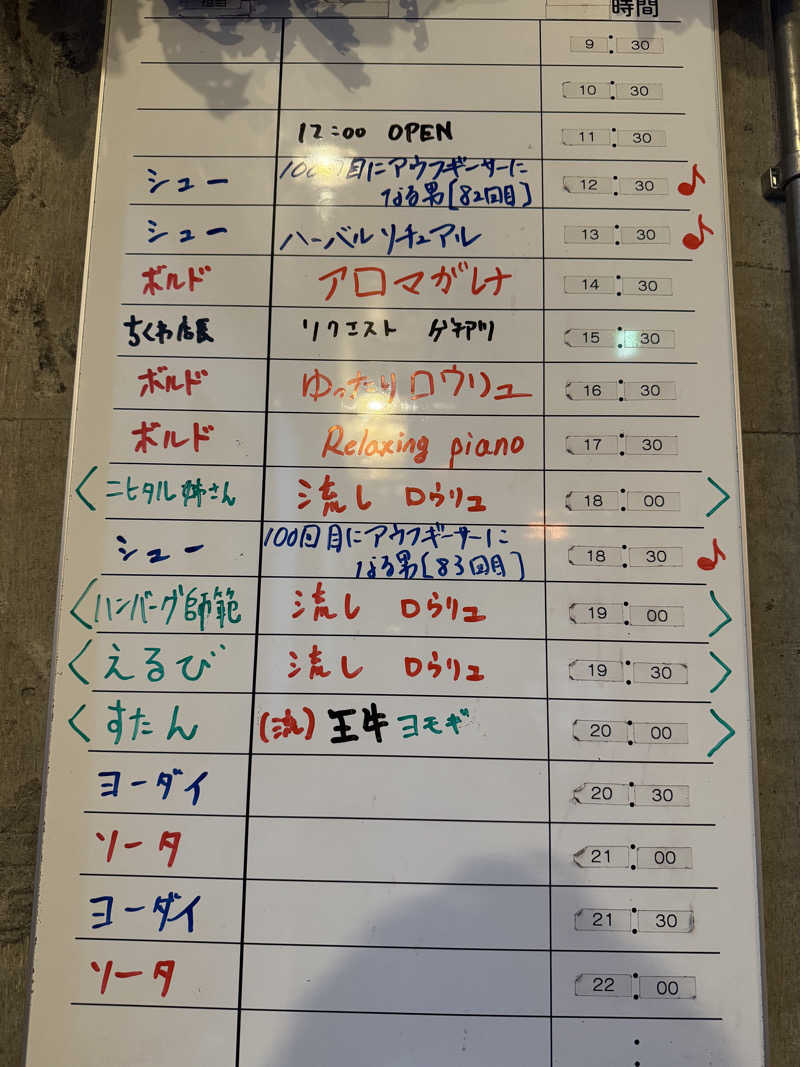 時間
9:30
10:30
12:00 OPEN 11:30
シュー 100回目にアウフギーサーに 12:30 ♪
なる男[82回目]
シュー ハーバルリチュアル 13:30 ♪
ボルド アロマガレナ 14:30
ちくわ店長 リクエスト ゲキアツ 15:30
ボルド ゆったりロウリュ 16:30
ボルド Relaxing piano 17:30
<ニヒタル姉さん 流し ロウリュ 18:00>
シュー 100回目にアウフギーサーに 18:30 ♪
なる男[83回目]
<ハンバーグ師範 流し ロウリュ 19:00>
<えるび 流し ロウリュ 19:30>
<すたん (流) 王牛 ヨモギ 20:00>
ヨーダイ 20:30
ソータ 21:00
ヨーダイ 21:30
ソータ 22:00
: